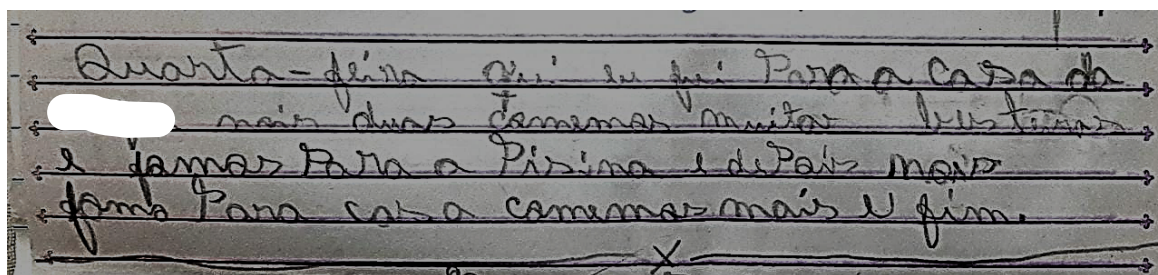 Quarta-feira eu fui Para a casa da
nois duas comemos muitas
e fomos Para a Pisina e dePois nois
fomo Para casa comemos mais e fim.